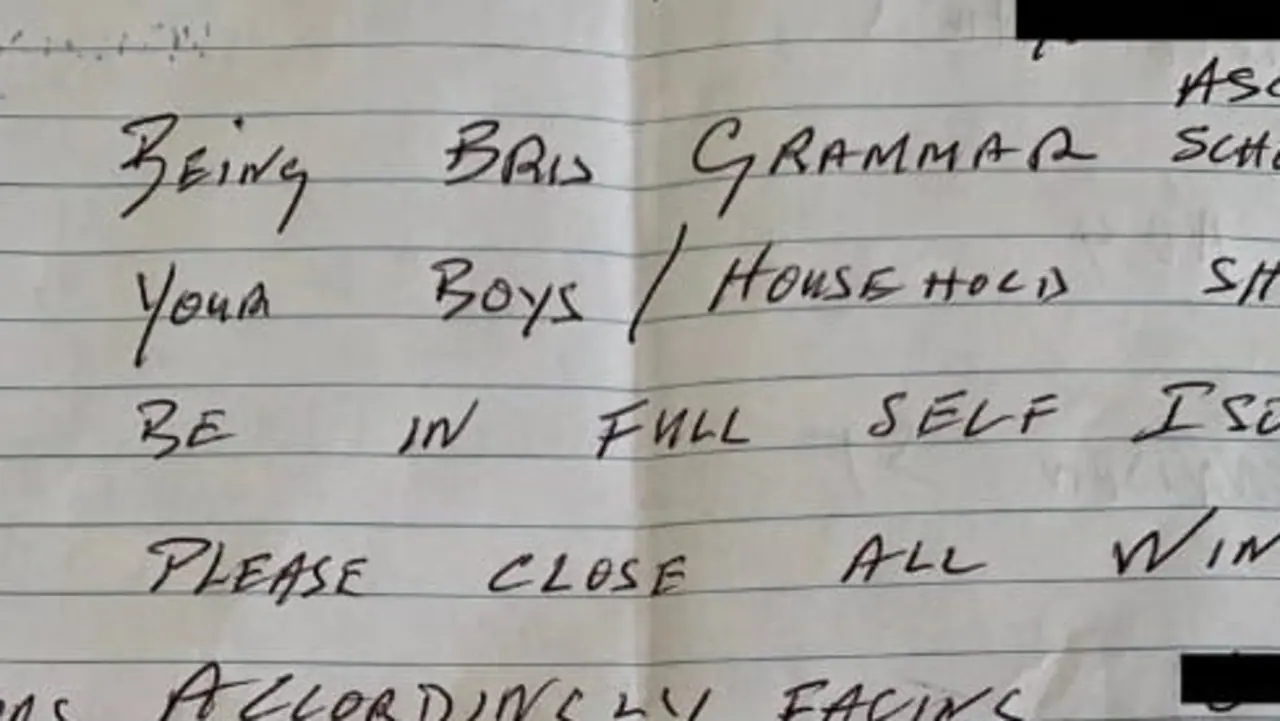 ASC
BEING BRIS GRAMMAR SCHO
YOUR BOYS / HOUSEHOLD SH
BE IN FULL SELF ISO
PLEASE CLOSE ALL WIN
ACCORDINGLY FACING